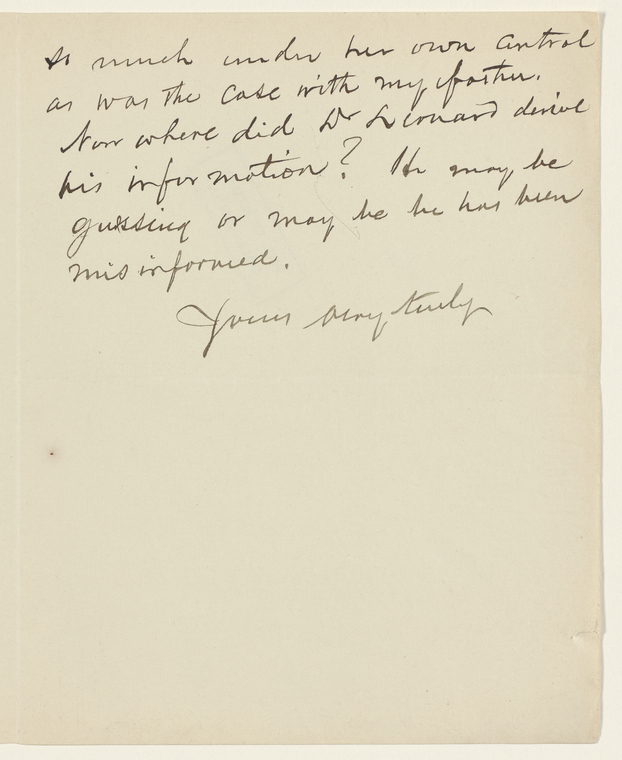 so much under her own control
as was the case with my father.
Now where did Dr Leonard derive
his information? He may be
guessing or may be he has been
misinformed.
Yours very truly